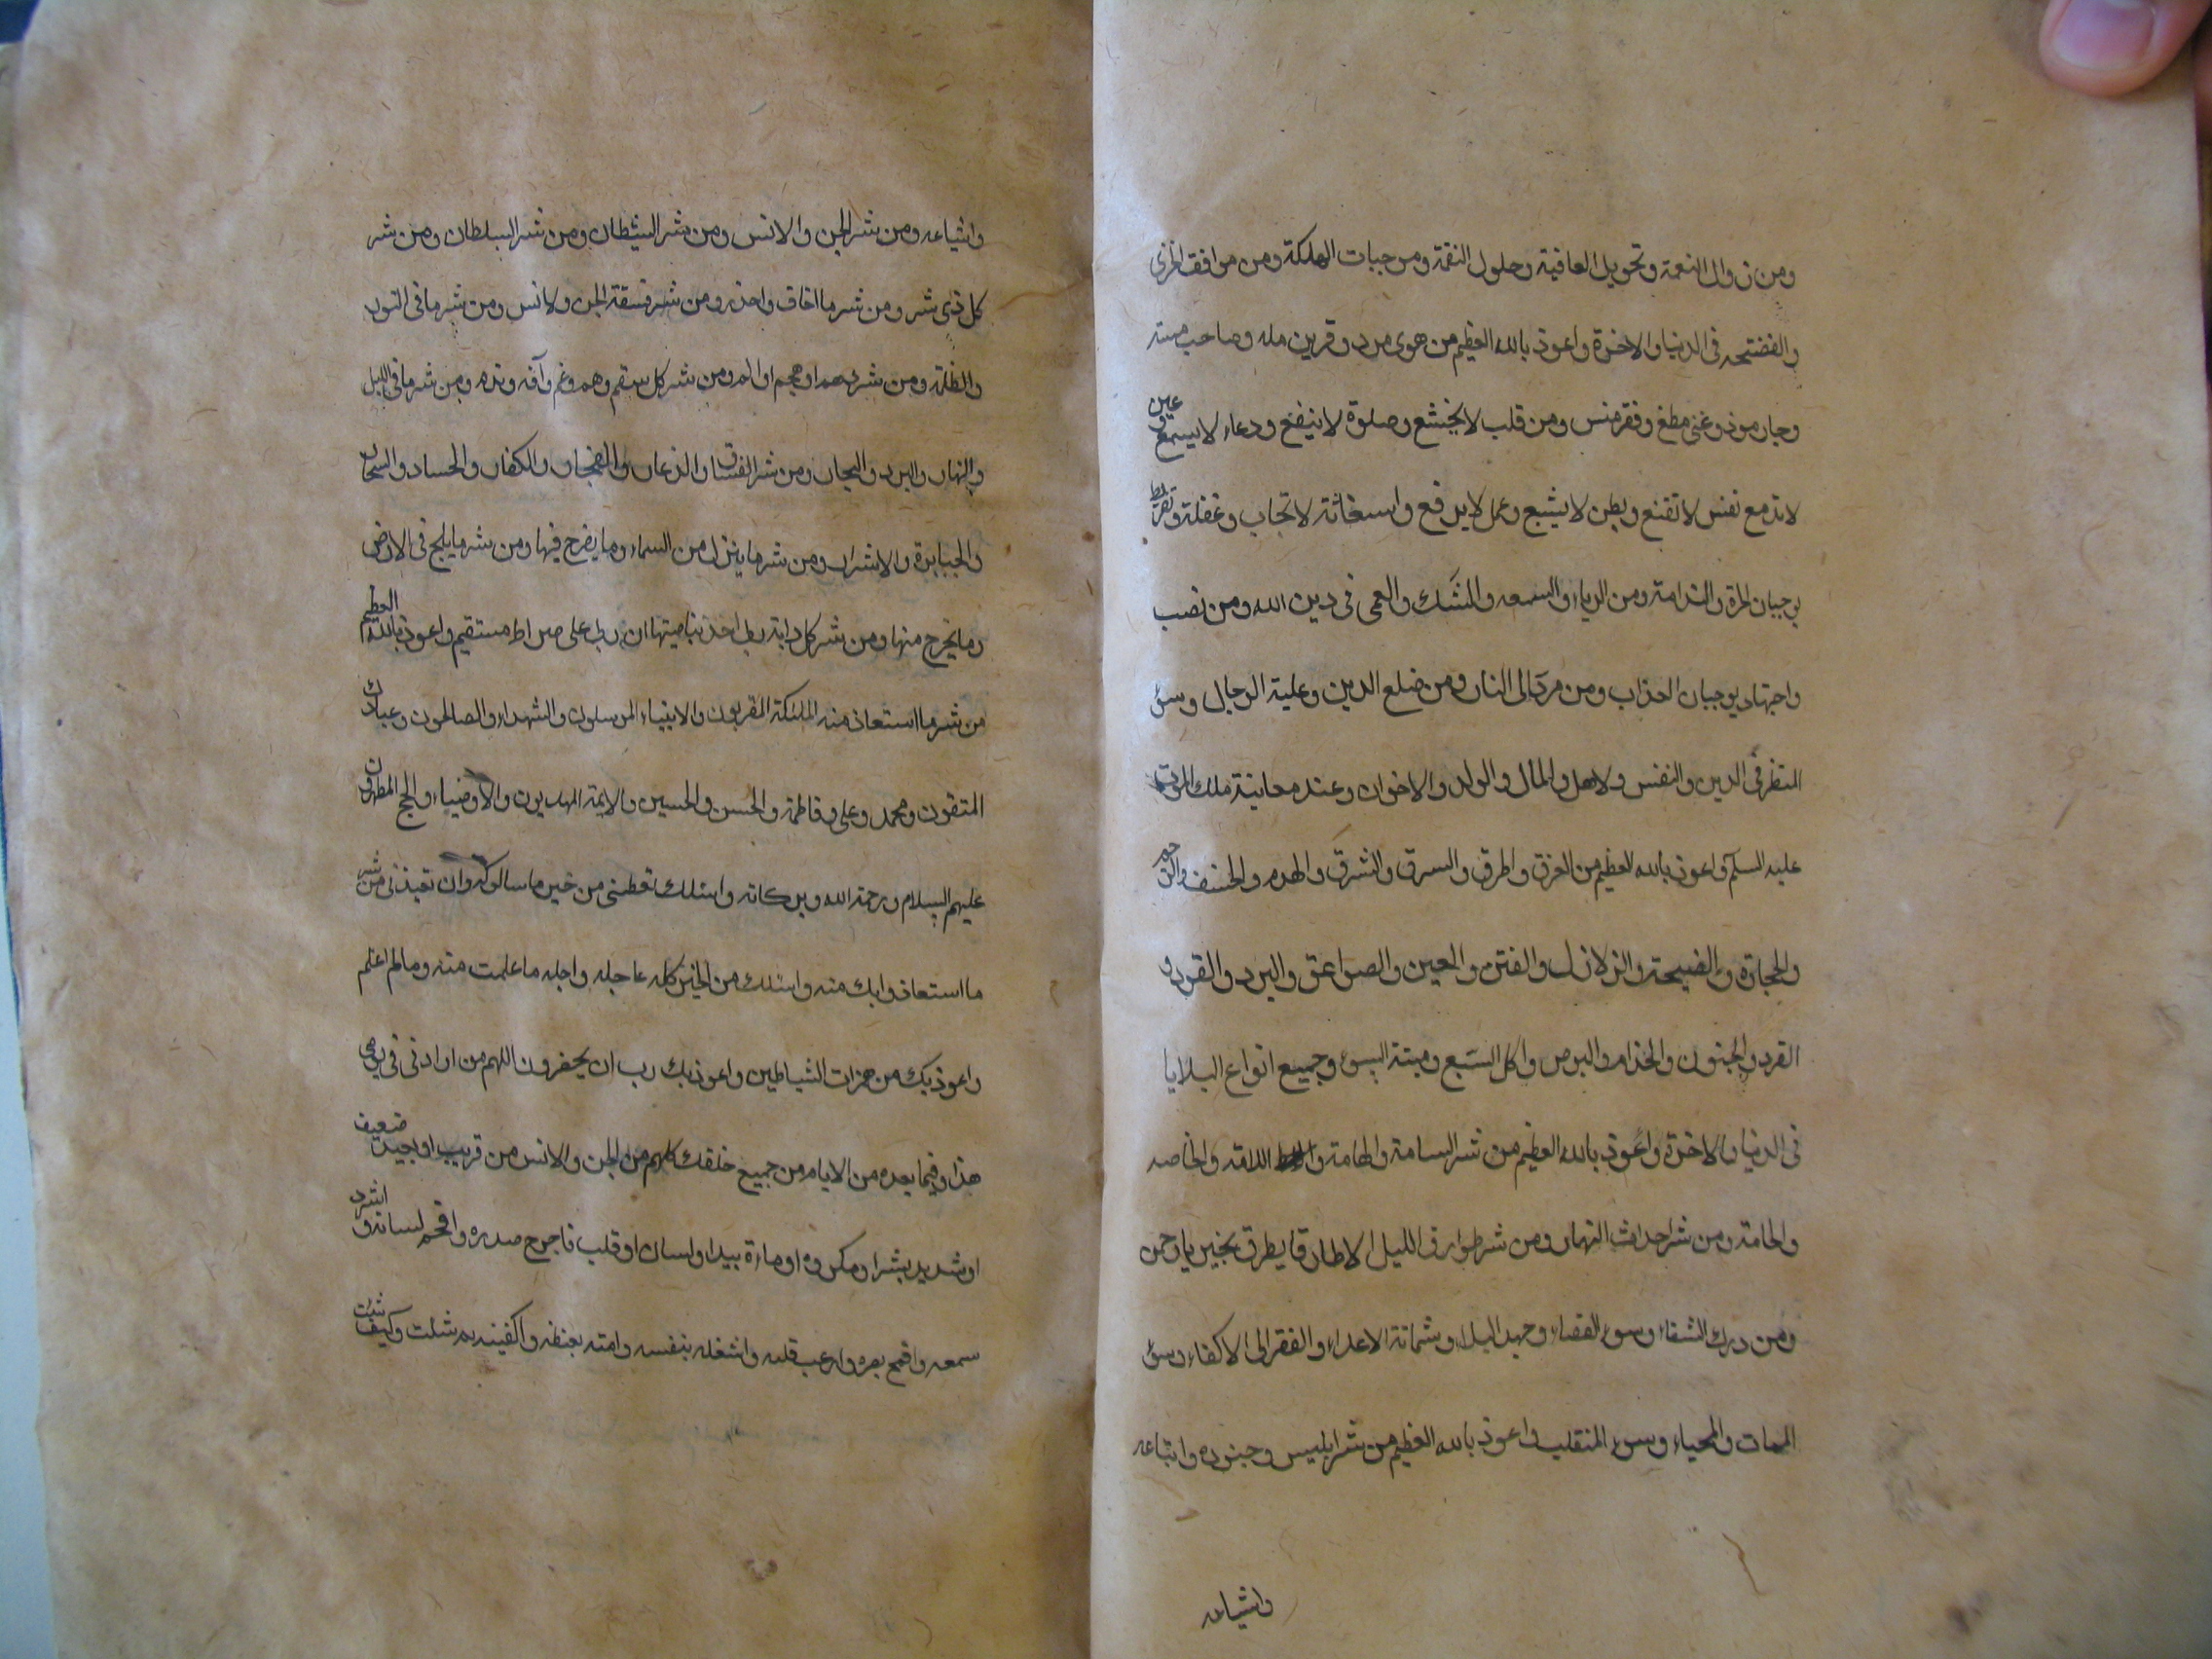 ومن زوال النعمة وتحويل العافية وحلول النقمة وموجبات الهلكة ومن مواقف الخزى
والفضيحه فى الدنيا والاخرة واعوذ بالله العظيم من هوى مرد وقرين مله وصاحب مسته
وجار موذ وغنى مطغ وفقر منس ومن قلب لا يخشع وصلوة لا ينفع ودعاء لا يسمع وعين
لا تدمع نفس لا تقنع وبطن لا يشبع وعمل لا يرفع واستغاثة لا تجاب وغفلة وتفريط
يوجبان الحرة والندامة ومن الرياء والسمعه والشك والعمى فى دين الله ومن نصب
واجتهاد يوجبان العذاب ومن مرد الى النار ومن ضلع الدين وغلبة الرجال وسوء
المنظر فى الدين والنفس ولاهل والمال والولد والاخوان وعند معاينة ملك الموت
عليه السلم واعوذ بالله العظيم من الغرق والحرق والسرق والشرق والهدم والخسف والرجم
والحجارة والصيحة والزلازل والفتن والعين والصواعق والبرد والقود و
القرد والجنون والجذام والبرص واكل السبع وميتة السوء وجميع انواع البلايا
فى الدنيا والاخرة واعوذ بالله العظيم من شر السامة والهامة واللامة والخاصه
والحامة ومن شر احداث النهار ومن شر طوارق الليل الا طارقا يطرق بخير يا رحمن
ومن درك الشقاء وسوء القضاء وجهد البلاء وشماتة الاعداء والفقر الى الاكفاء وسوء
الممات والمحياء وسوء المنقلب واعوذ بالله العظيم من شر ابليس وجنوده واتباعه
واشياعه
واشياعه ومن شر الجن والانس ومن شر الشيطان ومن شر السلطان ومن شر
كل ذى شر ومن شر ما اخاف واحذر ومن شر فسقة الجن ولانس ومن شر ما فى النور
والظلمة ومن شر ما هجم او الم ومن شر كل سقم وهم وغم وآفه وندم ومن شر ما فى الليل
والنهار والبرد والبحار ومن شر الفساق والذعار والفجار والكفار والحساد والسحار
والجبابرة والاشرار ومن شر ما ينزل من السماء وما يعرج فيها ومن شر ما يلج فى الارض
وما يخرج منها ومن شر كل دابة ربى اخذ بناصيتها ان ربى على صراط مستقيم واعوذ بالله العظيم
من شر ما استعاذ منه الملئكة المقربون والانبياء المرسلون والشهداء والصالحون وعبادك
المتقون ومحمد وعلى وفاطمة والحسن والحسين والايمة المهديون والاوصياء والحجج المطهرون
عليهم السلام ورحمة الله وبركاته واسئلك تعطنى من خير ما سالوكه وان تعيذنى من شر
ما استعاذوا بك منه واسئلك من الخير كله عاجله واجله ما علمت منه وما لم اعلم
واعوذ بك من همزات الشياطين واعوذ بك رب ان يحضرون اللهم من ارادنى فى يومى
هذا وفيما بعده من الايام من جميع خلقك كلهم من الجن والانس من قريب او بعيد ضعيف
او شديد بشر او مكروه او مساءة بيد او لسان او قلب فاحرج صدره وافحم لسانه و اشدد
سمعه واقمح بصره وارعب قلبه واشغله بنفسه وامته بغيظه واكفينه بم شئت وكيف شئت